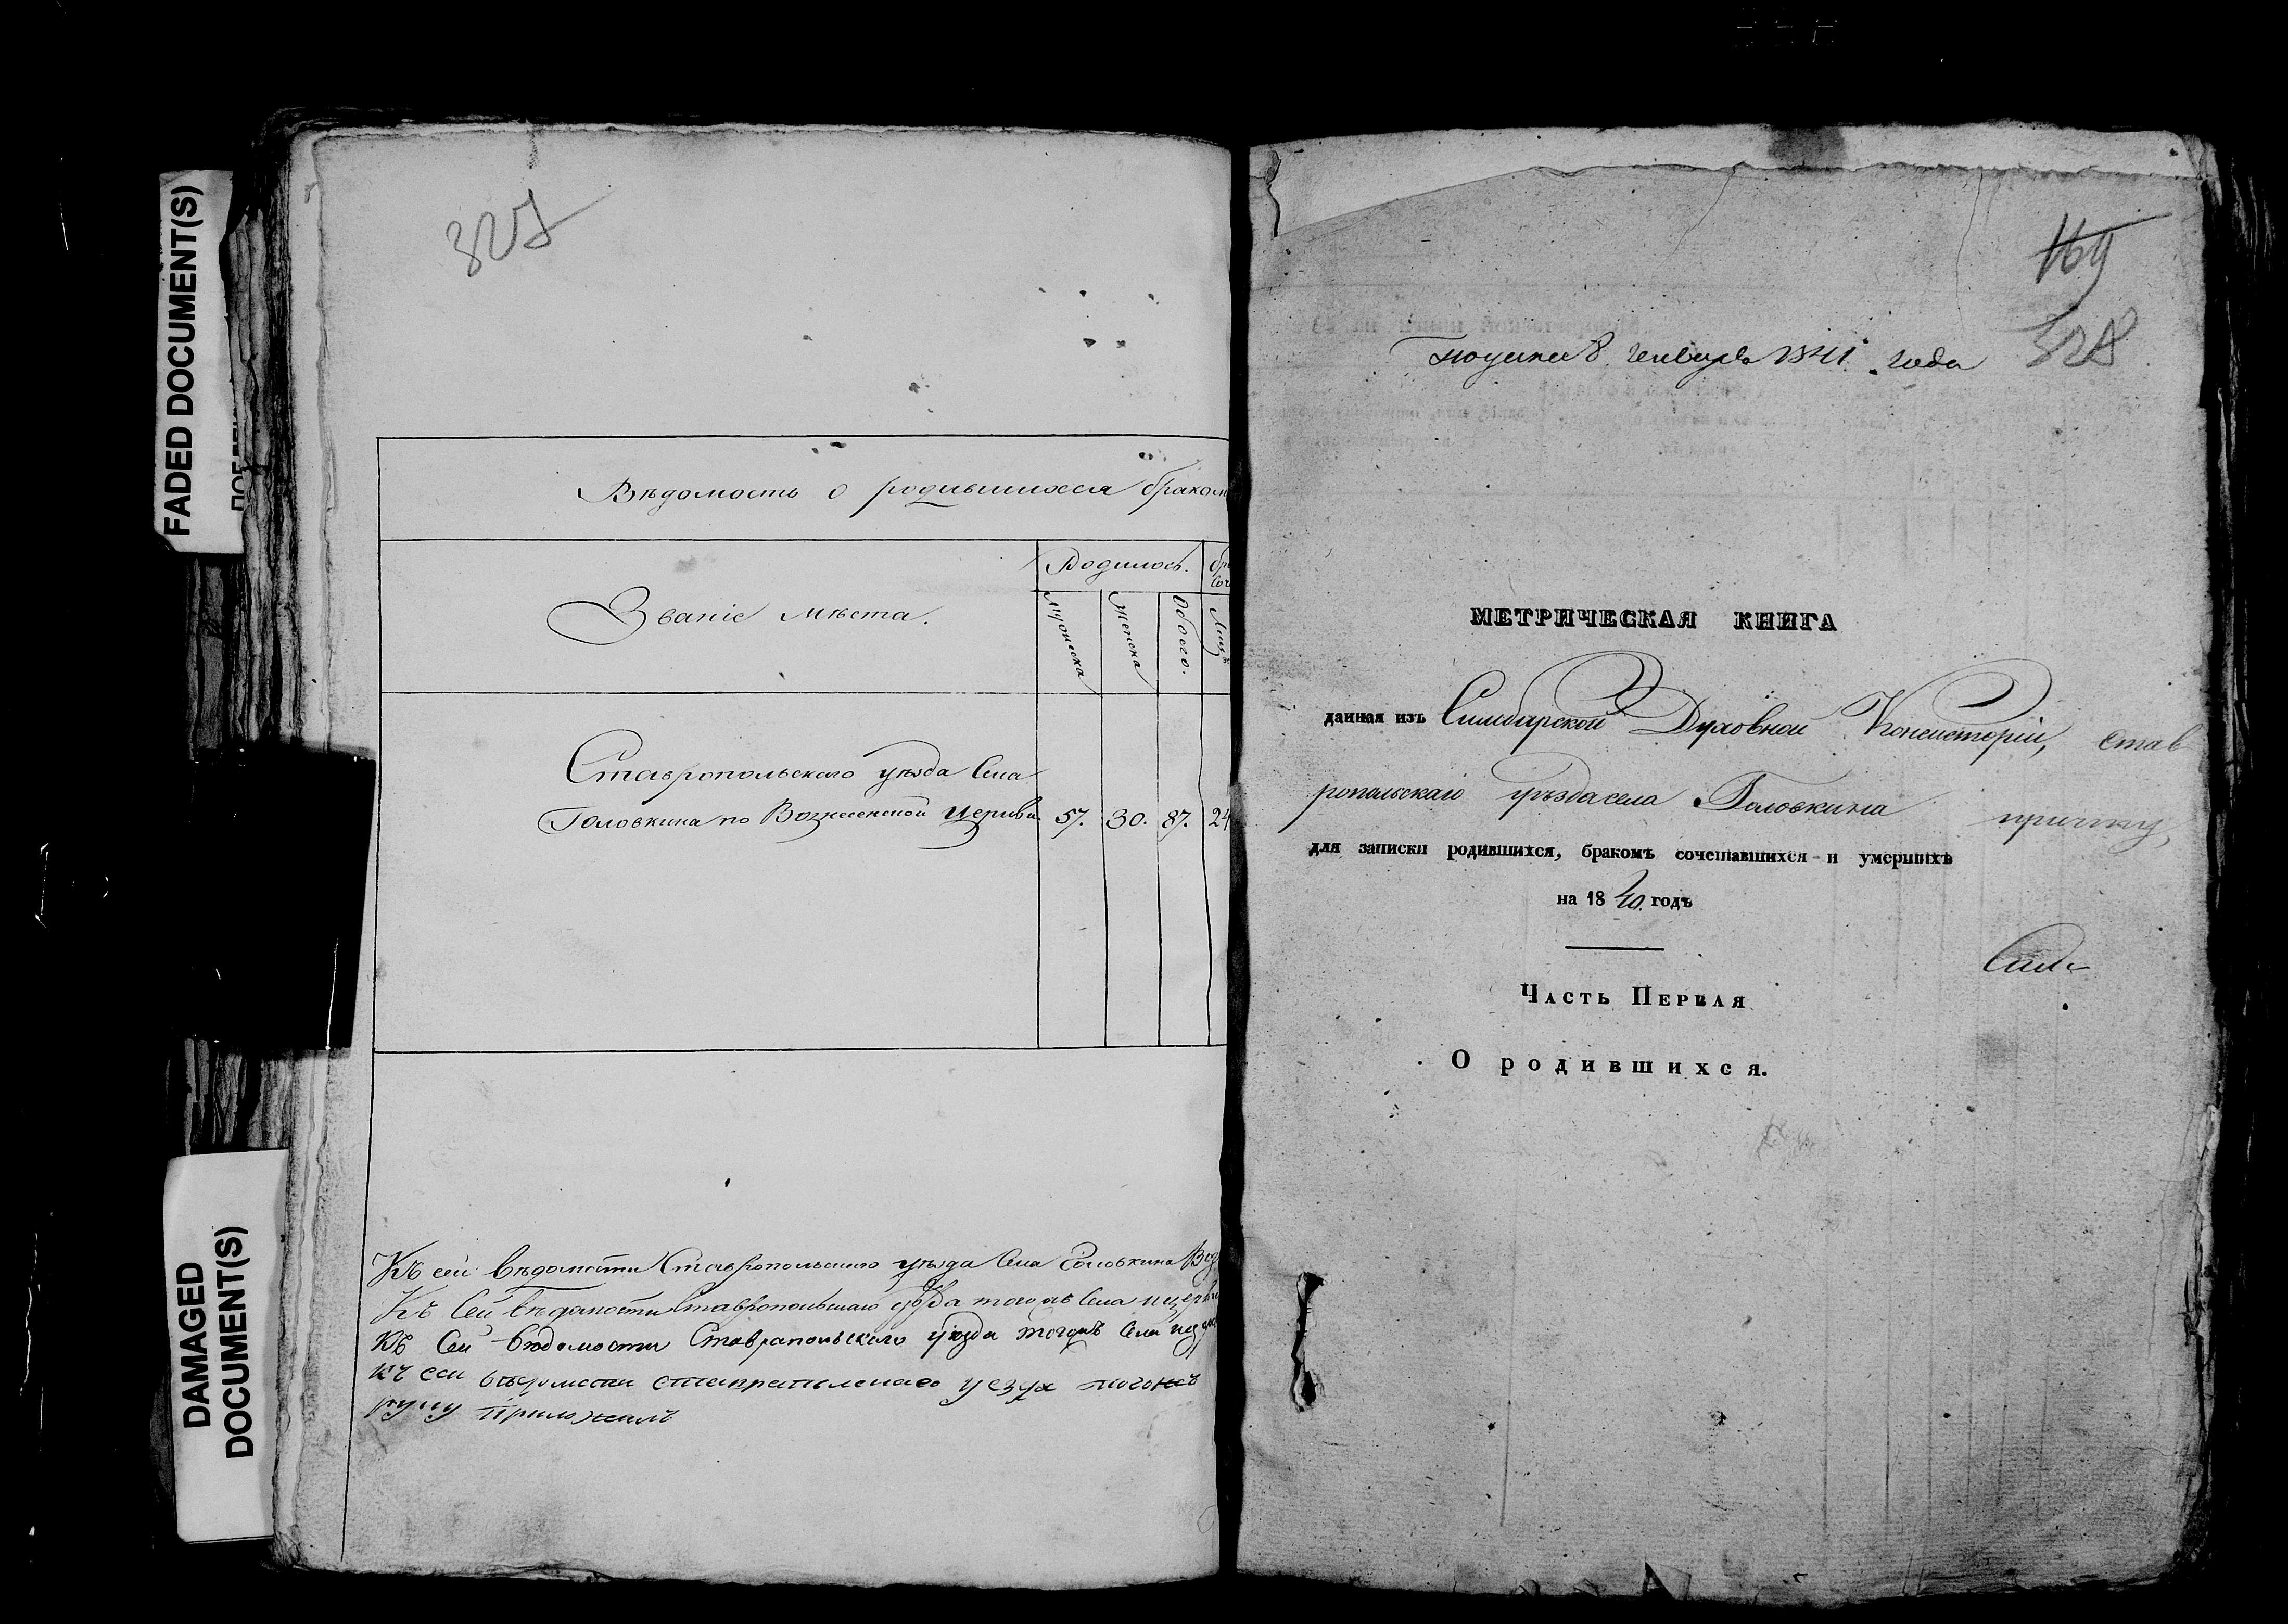 FADED DOCUMENT(S)
DAMAGED
DOCUMENT(S)
327
Вѣдомость о родившихся браком
Званіе мѣста.
Родилось.
Мужеска
Женска
Обоего.
Ставропольскаго уѣзда Села
Головкина по Вознесенской Церкви
57. 30. 87. 24
Къ сей вѣдомости Ставропольскаго уѣзда Села Головкина
Къ Сей вѣдомости Ставропольскаго уѣзда тогожъ Села
Къ Сей вѣдомости Ставропольскаго уѣзда тогожъ Села
къ сей
руку приложилъ
169
328
1841 года
МЕТРИЧЕСКАЯ КНИГА
данная изъ Симбирской Духовной Консисторіи, став
ропольскаго уѣзда села Головкина причту,
для записки родившихся, бракомъ сочетавшихся и умершихъ
на 1840 годъ
Часть Первая
О родившихся.